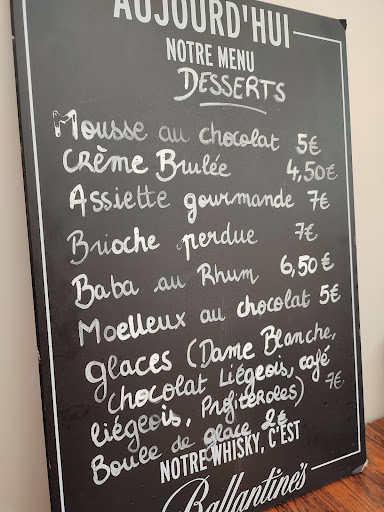 AUJOURD'HUI
NOTRE MENU
DESSERTS
Mousse au chocolat 5€
Crème Brulée 4,50€
Assiette gourmande 7€
Brioche perdue 7€
Baba au Rhum 6,50€
Moelleux au chocolat 5€
glaces (Dame Blanche,
Chocolat Liégeois, café
liégeois, Profiteroles) 7€
Boule de glace 2€
NOTRE WHISKY, C'EST
Ballantine's